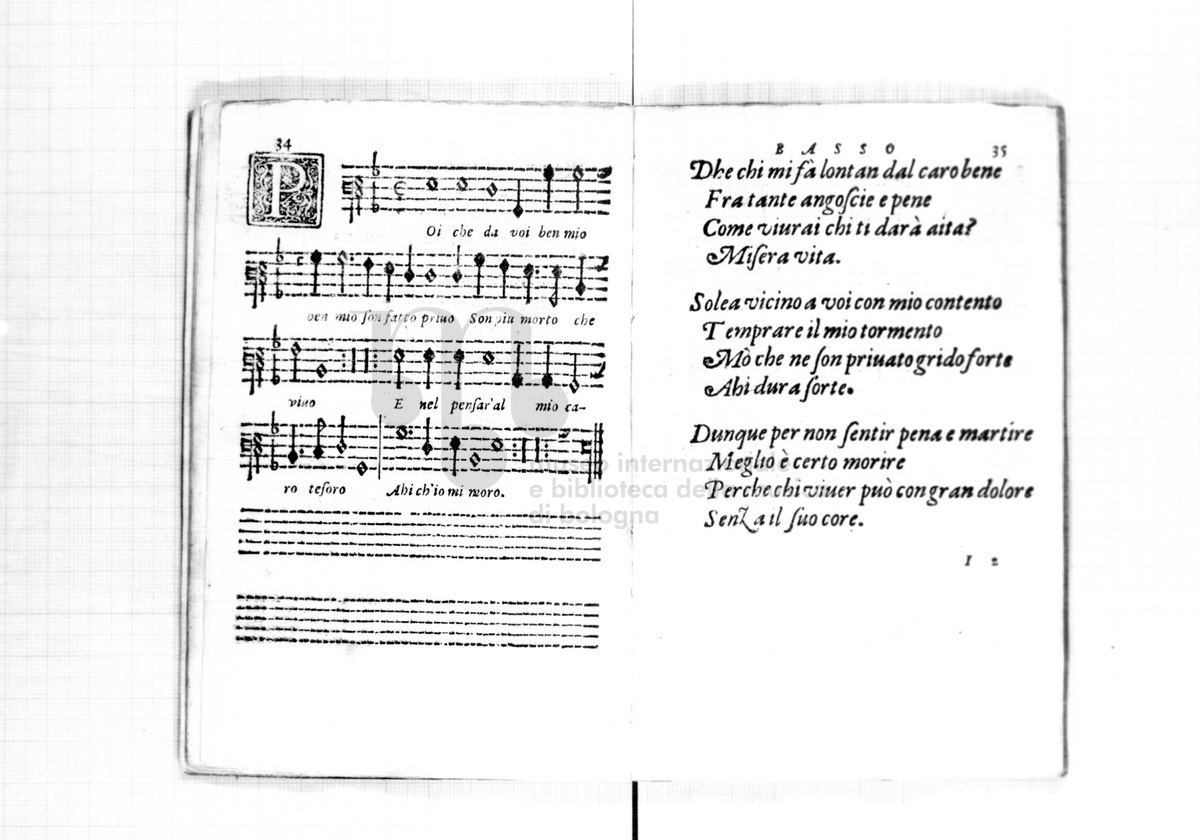 34
P
Oi che da voi ben mio
ben mio ſon fatto priuo Son piu morto che
viuo E nel penſar'al mio ca-
ro teſoro Ahi ch'io mi moro.
BASSO 35
Dhe chi mi fà lontan dal caro bene
Fra tante angoſcie e pene
Come viurai chi ti darà aita?
Miſera vita.
Solea vicino a voi con mio contento
Temprare il mio tormento
Mò che ne ſon priuato grido forte
Ahi dura ſorte.
Dunque per non ſentir pena e martire
Meglio è certo morire
Perche chi viuer può con gran dolore
Senza il ſuo core.
I 2
museo internazionale
e biblioteca de
di bologna